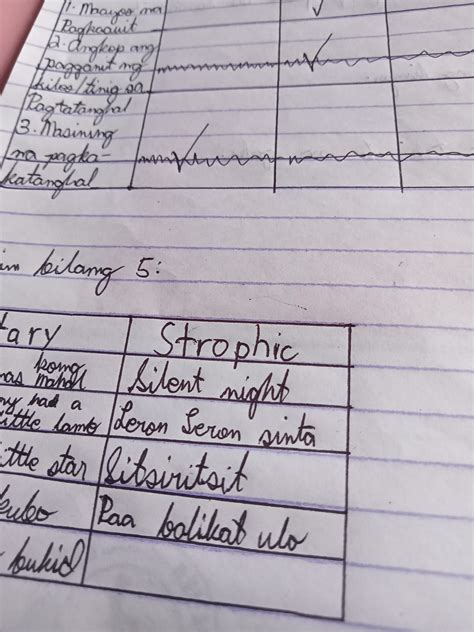 1. Maayos na
Pagkaawit
2. Angkop ang
paggamit ng
kilos/tinig sa
Pagtatanghal
3. Masining
na pagka-
katanghal
bilang 5:
tary Strophic
kong
mas mahal Silent night
ny had a
little lamb Leron Leron sinta
ittle star Sitsiritsit
kubo Paa balikat ulo
bukid